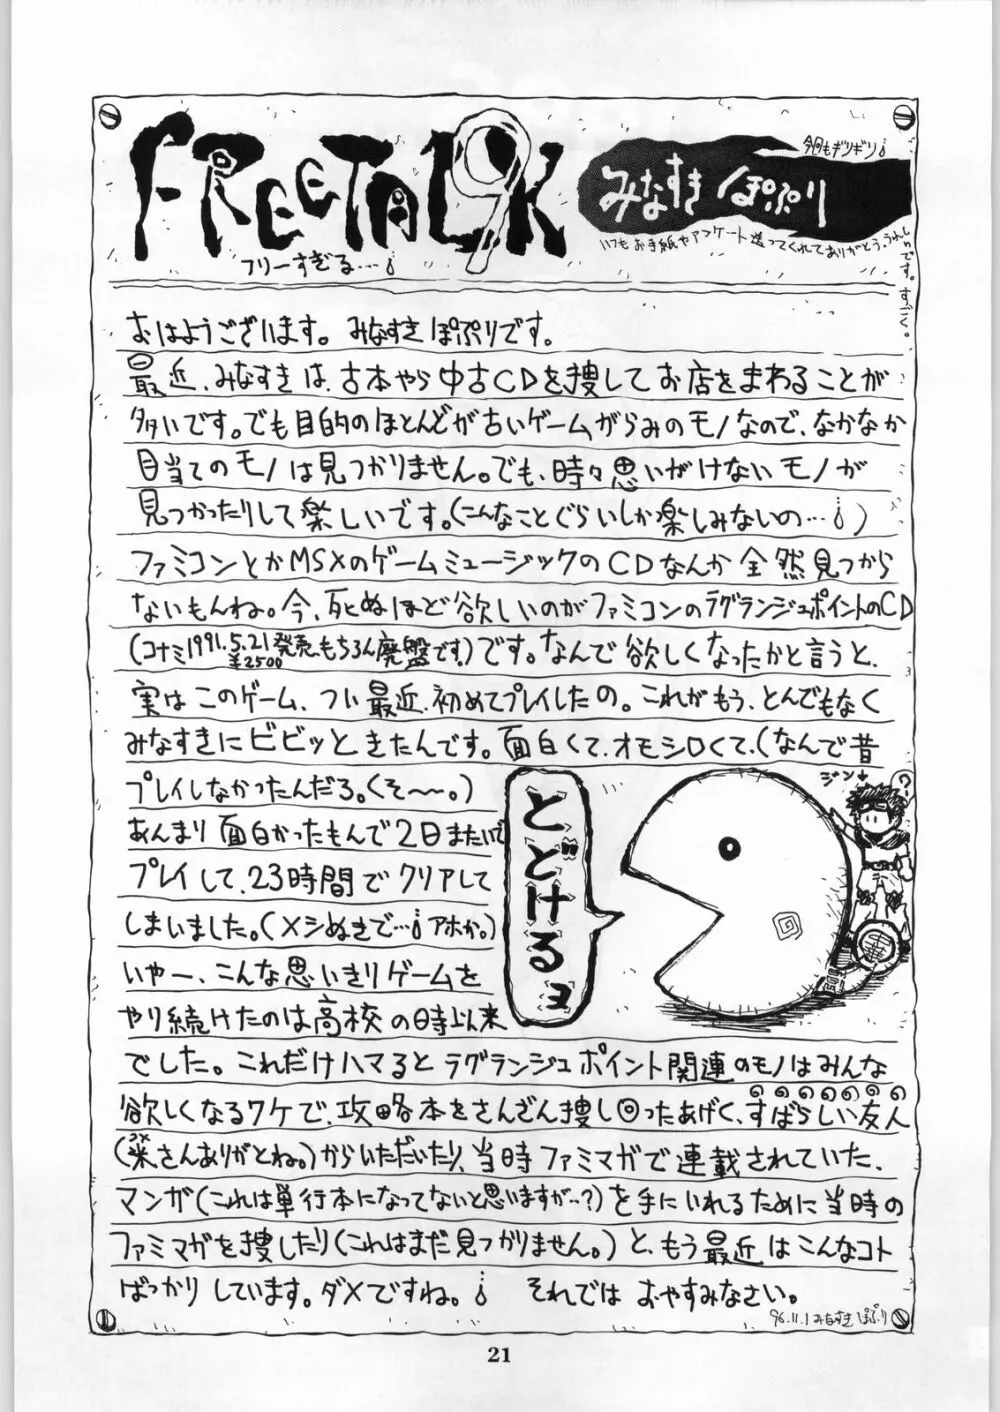 FREETALK
9
フリーすぎる…
今回もギリギリ
みなすき ぽぷり
いつもお手紙やアンケート送ってくれてありがとう。うれしいです。すごく。
おはようございます。みなすき ぽぷりです。
最近、みなすきは、古本やら中古CDを捜してお店をまわることが
多いです。でも目的のほとんどが古いゲームがらみのモノなので、なかなか
目当てのモノは見つかりません。でも、時々思いがけないモノが
見つかったりして楽しいです。(こんなことぐらいしか楽しみないの…)
ファミコンとかMSXのゲームミュージックのCDなんか全然見つから
ないもんね。今、死ぬほど欲しいのがファミコンのラグランジュポイントのCD
(コナミ1991.5.21発売。もちろん廃盤です。)です。なんで欲しくなったかと言うと、
¥2500
実はこのゲーム、つい最近、初めてプレイしたの。これがもう、とんでもなく
みなすきにビビッときたんです。面白くて、オモシロくて、(なんで昔
プレイしなかったんだろ。くそ〜。)
あんまり面白かったもんで2日またいで
プレイして、23時間でクリアして
しまいました。(メシぬきで…アホか。)
いやー、こんな思いきりゲームを
やり続けたのは高校の時以来
とどけるヨ
ジン→
?
でした。これだけハマるとラグランジュポイント関連のモノはみんな
欲しくなるワケで、攻略本をさんざん捜し回ったあげく、すばらしい友人
(米さんありがとね。)からいただいたり、当時ファミマガで連載されていた、
マンガ(これは単行本になってないと思いますが…?)を手にいれるために当時の
ファミマガを捜したり(これはまだ見つかりません。)と、もう最近はこんなコト
ばっかりしています。ダメですね。 それでは おやすみなさい。
96.11.1 みなすき ぽぷり
21